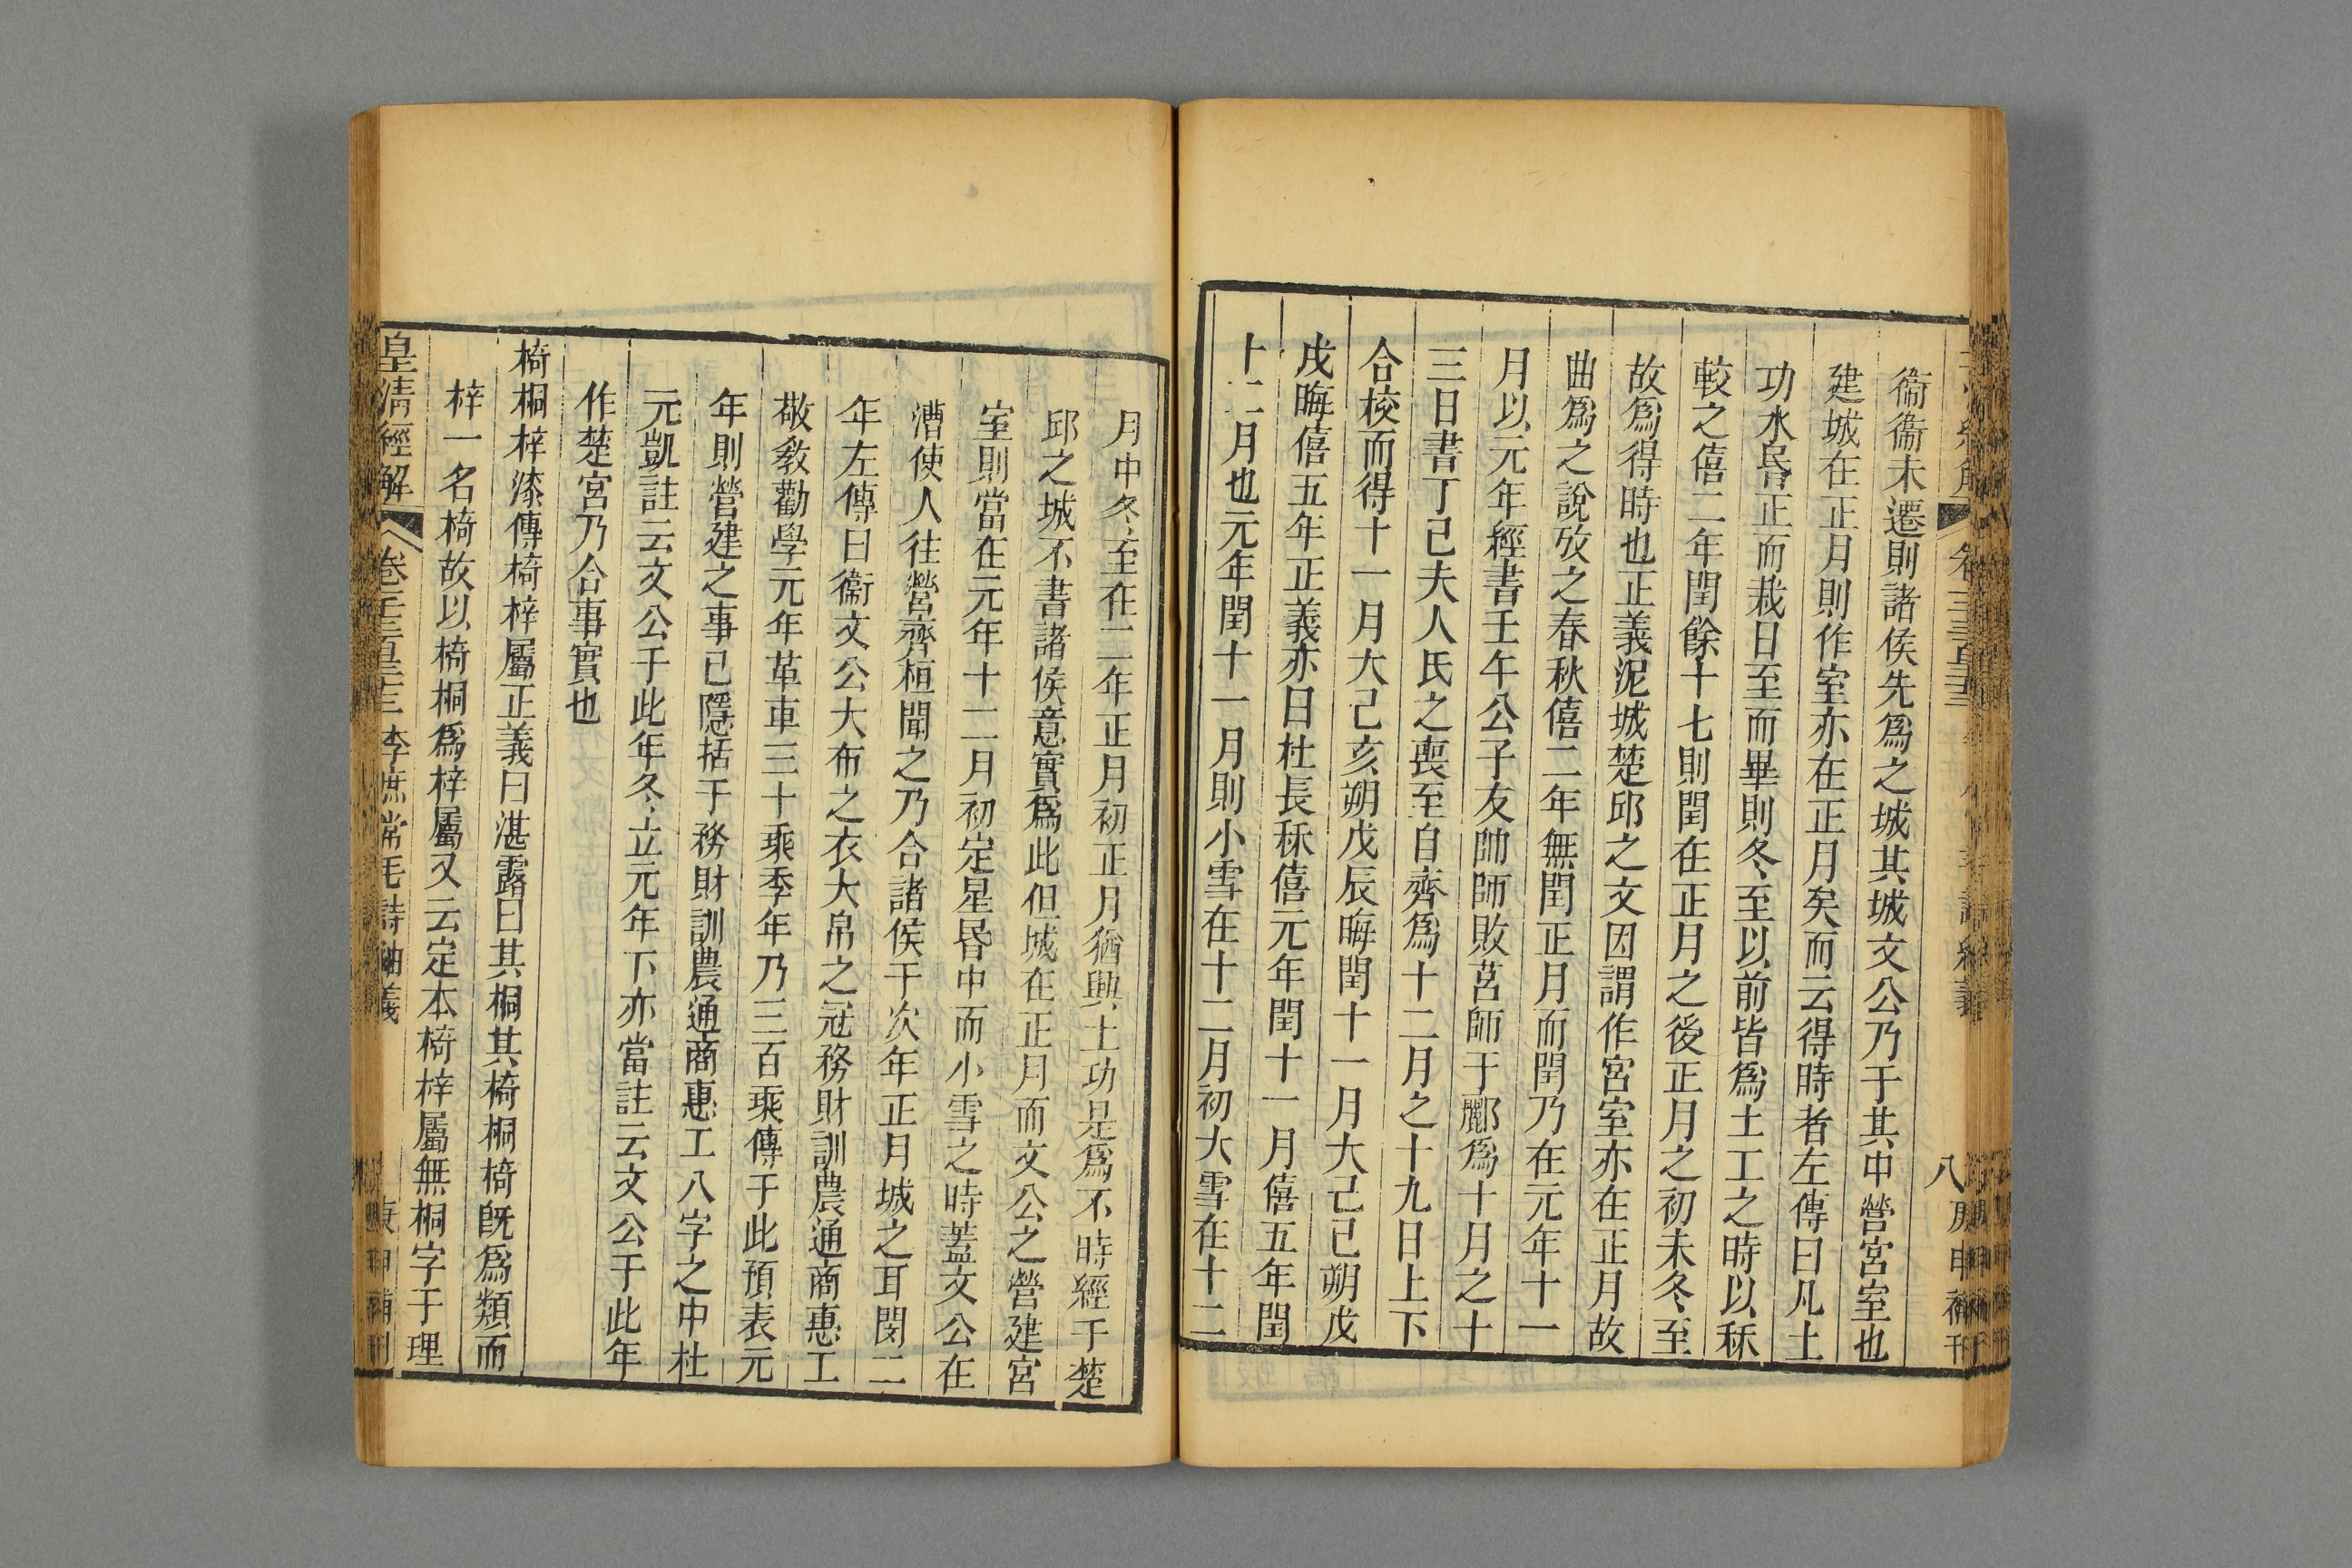 衞衞未遷則諸侯先爲之城其城文公乃于其中營宮室也
建城在正月則作室亦在正月矣而云得時者左傳曰凡土
功水昏正而栽日至而畢則冬至以前皆爲土工之時以秝
較之僖二年閏餘十七則閏在正月之後正月之初未冬至
故爲得時也正義泥城楚邱之文因謂作宮室亦在正月故
曲爲之說攷之春秋僖二年無閏正月而閏乃在元年十一
月以元年經書壬午公子友帥師敗莒師于酈爲十月之十
三日書丁己夫人氏之喪至自齊爲十二月之十九日上下
合校而得十一月大己亥朔戊辰晦閏十一月大己巳朔戊
戌晦僖五年正義亦曰杜長秝僖元年閏十一月僖五年閏
十二月也元年閏十一月則小雪在十二月初大雪在十二
月中冬至在二年正月初正月猶興土功是爲不時經于楚
邱之城不書諸侯意實爲此但城在正月而文公之營建宮
室則當在元年十二月初定星昏中而小雪之時蓋文公在
漕使人往營齊桓聞之乃合諸侯于次年正月城之耳閔二
年左傳曰衞文公大布之衣大帛之冠務財訓農通商惠工
敬敎勸學元年革車三十乘季年乃三百乘傳于此預表元
年則營建之事已隱括于務財訓農通商惠工八字之中杜
元凱註云文公于此年冬立元年下亦當註云文公于此年
作楚宮乃合事實也
椅桐梓漆傳椅梓屬正義曰湛露曰其桐其椅桐椅旣爲類而
梓一名椅故以椅桐爲梓屬又云定本椅梓屬無桐字于理
皇清經解 卷三百三 李庶常毛詩紬義 庚申補刊